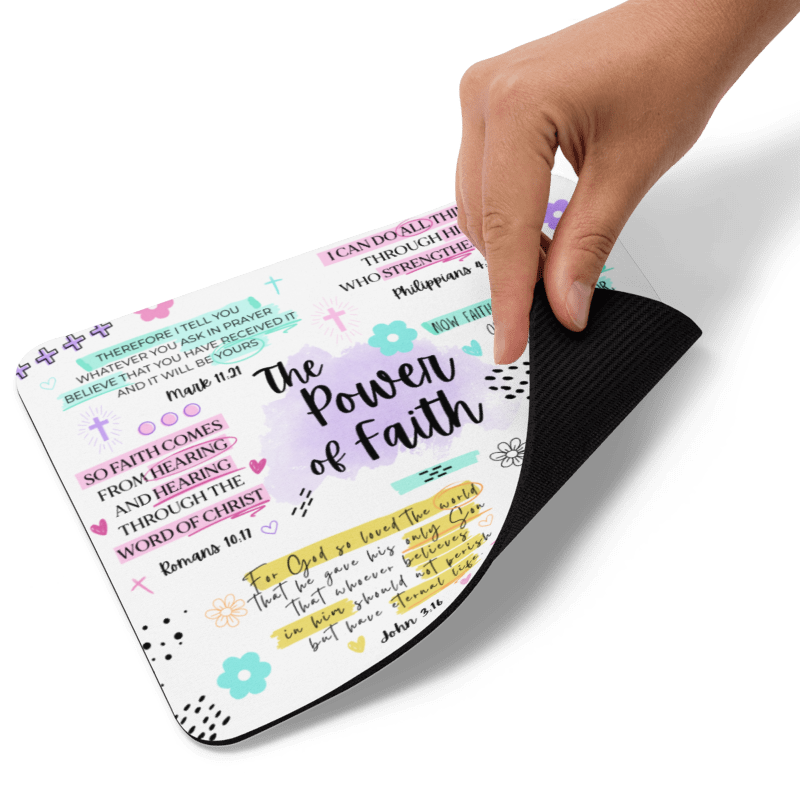 I CAN DO ALL
THROUGH
WHO STRENGTHE
Philippians 4.
THEREFORE I TELL YOU
WHATEVER YOU ASK IN PRAYER
BELIEVE THAT YOU HAVE RECEIVED IT
AND IT WILL BE YOURS
Mark 11.21
NOW FAITH
The
Power
of Faith
SO FAITH COMES
FROM HEARING
AND HEARING
THROUGH THE
WORD OF CHRIST
Romans 10.17
For God so loved the world
that he gave his only Son
that whoever believes
in him should not perish
but have eternal life.
John 3.16